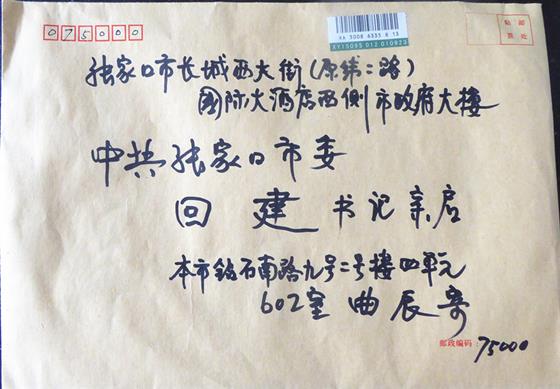 075000
XA 3008 6335 6 13
XY15095 012 010923
贴邮
票处
张家口市长城西大街(原纬二路)
国际大酒店西侧市政府大楼
中共张家口市委
回建书记亲启
本市钻石南路九号二号楼四单元
602室 曲辰寄
邮政编码:75000